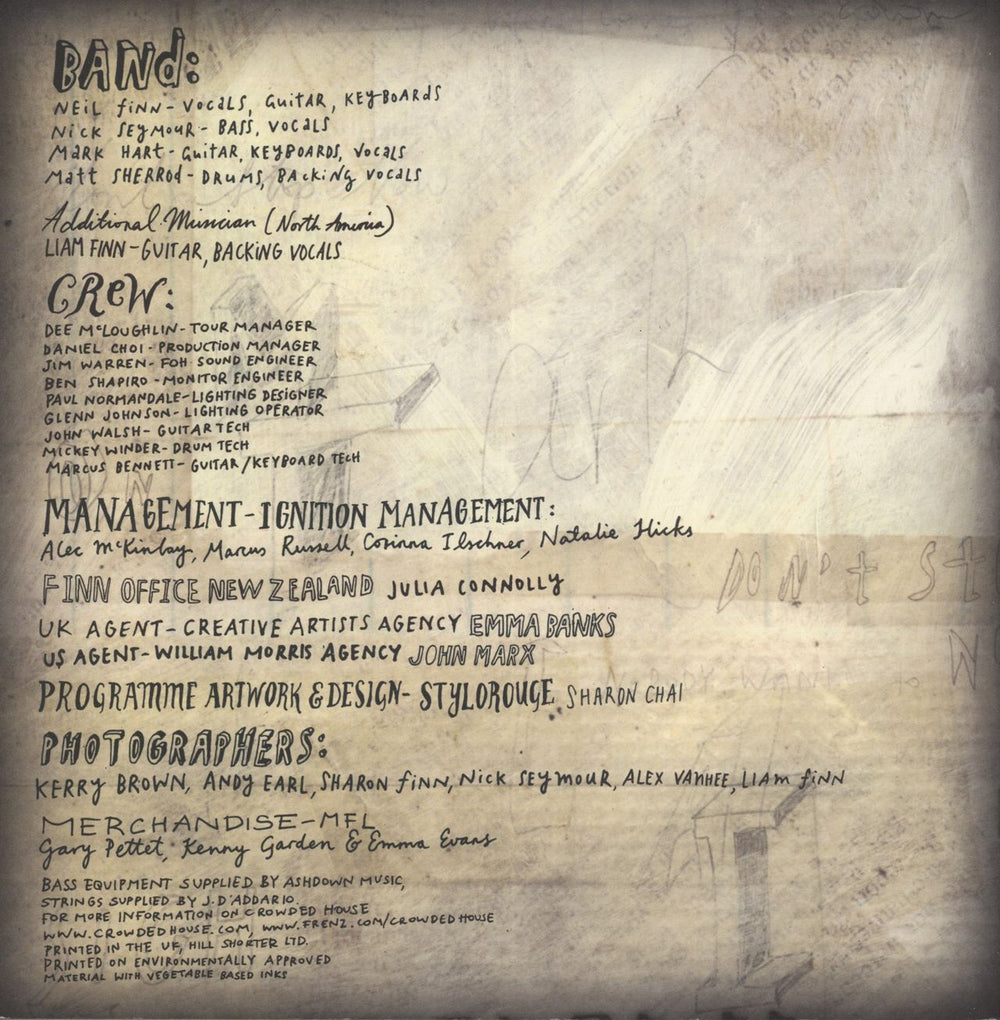 BANd:
NEiL fiNN - VOCALS, GuitAR, KEYBOARdS
NiCK SEYMOUR - BASS, VOCALS
MARK HARt - GuitAR, KEYBOARDS, VOCALS
MAtt SHERROd - DRUMS, BACKiNg VOCALS
Additional Musician (North America)
LIAM FINN - GUITAR, BACKING VOCALS
CReW:
DEE McLOUGHLIN - TOUR MANAGER
DANIEL CHOI - PRODUCTION MANAGER
JIM WARREN - FOH SOUND ENGINEER
BEN SHAPIRO - MONITOR ENGINEER
PAUL NORMANDALE - LIGHTING DESIGNER
GLENN JOHNSON - LIGHTING OPERATOR
JOHN WALSH - GUITAR TECH
MICKEY WINDER - DRUM TECH
MARCUS BENNETT - GUITAR/KEYBOARD TECH
MANAGEMENT - IGNITION MANAGEMENT:
Alec McKinlay, Marcus Russell, Corinna Ilschner, Natalie Hicks
FINN OFFICE NEW ZEALAND JULIA CONNOLLY
UK AGENT - CREATIVE ARTISTS AGENCY EMMA BANKS
US AGENT - WILLIAM MORRIS AGENCY JOHN MARX
DON't St
PROGRAMME ARTWORK & DESIGN - STYLOROUGE SHARON CHAI
PHOTOGRAPHERS:
KERRY BROWN, ANDY EARL, SHARON fiNN, NiCK SEYMOUR, ALEX VANHEE, LIAM fiNN
MERCHANDISE - MFL
Gary Pettet, Kenny Garden & Emma Evans
BASS EQUIPMENT SUPPLIED BY ASHDOWN MUSIC,
STRINGS SUPPLIED BY J. D'ADDARIO.
FOR MORE INFORMATION ON CROWDED HOUSE
WWW.CROWDEDHOUSE.COM, WWW.FRENZ.COM/CROWDEDHOUSE
PRINTED IN THE UK, HILL SHORTER LTD.
PRINTED ON ENVIRONMENTALLY APPROVED
MATERIAL WITH VEGETABLE BASED INKS